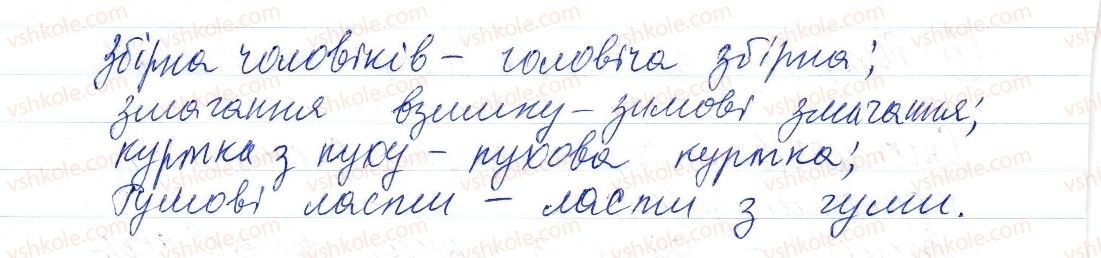 збірна чоловіків – чоловіча збірна;
змагання взимку – зимові змагання;
куртка з пуху – пухова куртка;
Гумові ласти – ласти з гуми.